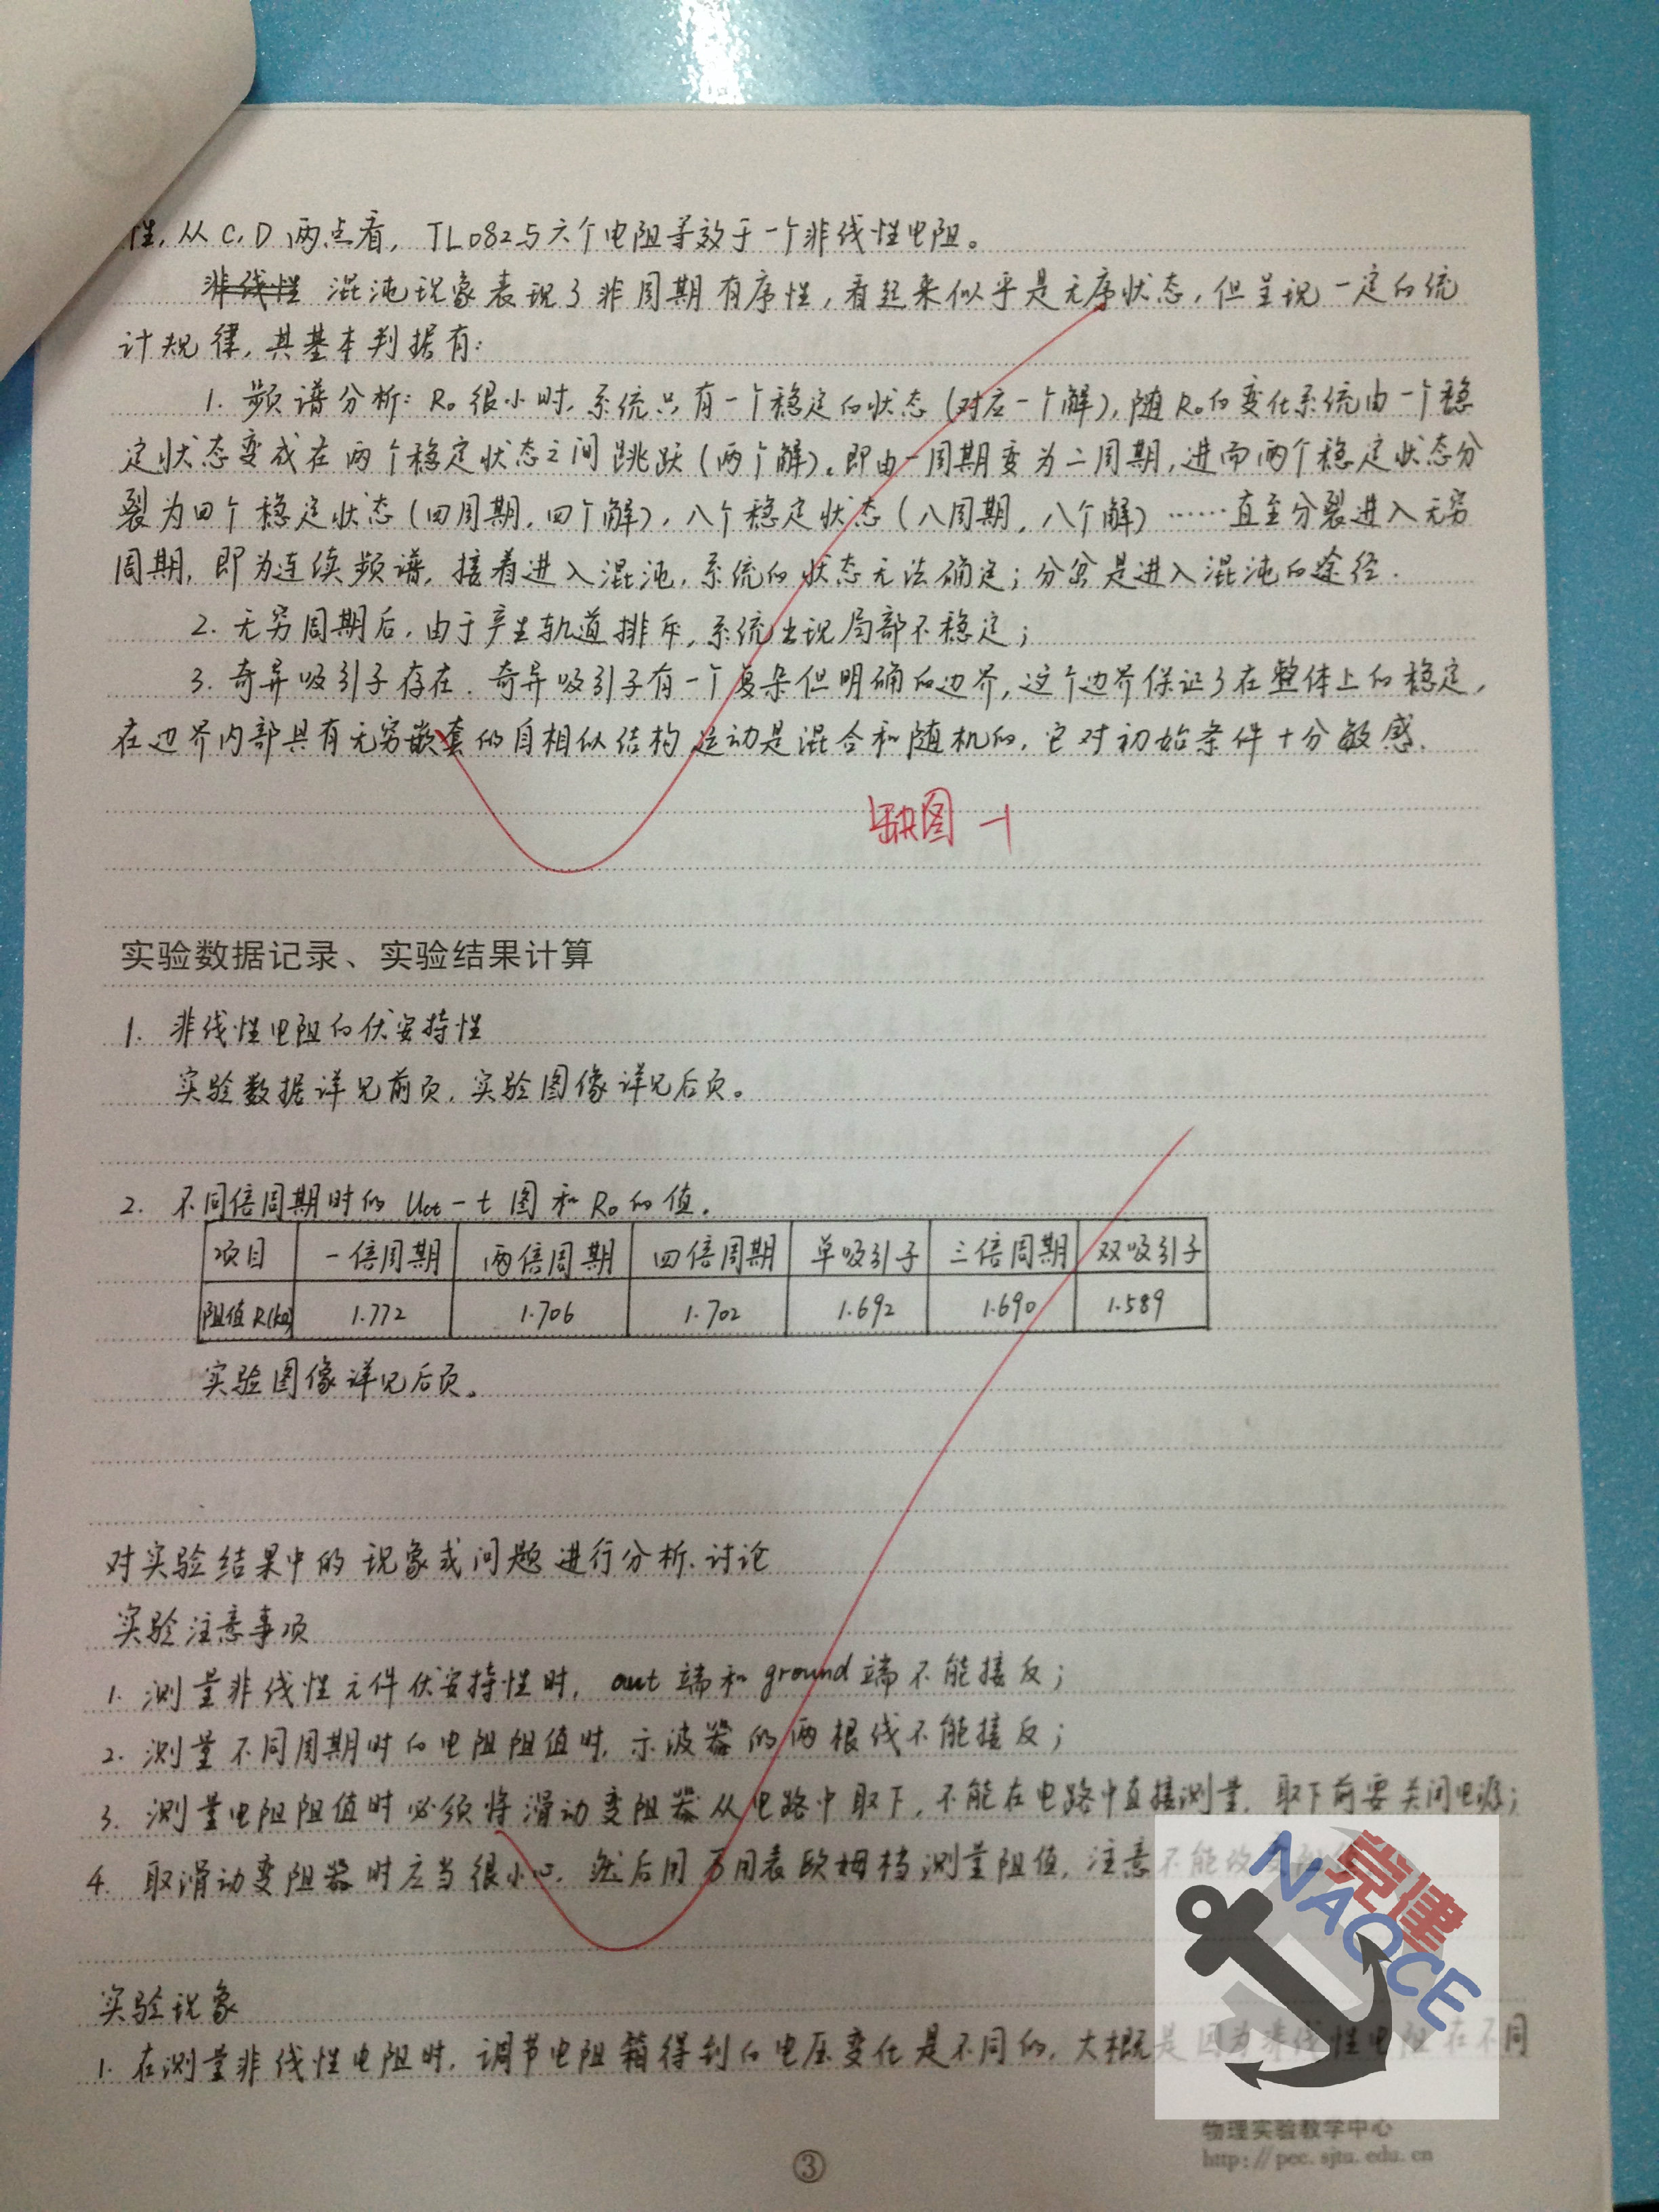 性，从C,D两点看，TL082与六个电阻等效于一个非线性电阻。
非线性 混沌现象表现了非周期有序性，看起来似乎是无序状态，但呈现一定的统
计规律，其基本判据有：
1. 频谱分析：R₀很小时，系统只有一个稳定的状态（对应一个解），随R₀的变化系统由一个稳
定状态变成在两个稳定状态之间跳跃（两个解）。即由一周期变为二周期，进而两个稳定状态分
裂为四个稳定状态（四周期，四个解），八个稳定状态（八周期，八个解）……直至分裂进入无穷
周期，即为连续频谱，接着进入混沌，系统的状态无法确定；分岔是进入混沌的途径.
2. 无穷周期后，由于产生轨道排斥，系统出现局部不稳定；
3. 奇异吸引子存在．奇异吸引子有一个复杂但明确的边界，这个边界保证了在整体上的稳定，
在边界内部具有无穷嵌套的自相似结构 运动是混合和随机的，它对初始条件十分敏感.
缺图 -1
实验数据记录、实验结果计算
1. 非线性电阻的伏安特性
实验数据详见前页，实验图像详见后页。
2. 不同倍周期时的 Uct-t图和R₀的值.
项目 一倍周期 两倍周期 四倍周期 单吸引子 三倍周期 双吸引子
阻值R(kΩ) 1.772 1.706 1.702 1.692 1.690 1.589
实验图像详见后页。
对实验结果中的现象或问题进行分析、讨论
实验注意事项
1. 测量非线性元件伏安特性时，out端和ground端不能接反；
2. 测量不同周期时的电阻阻值时，示波器的两根线不能接反；
3. 测量电阻阻值时必须将滑动变阻器从电路中取下，不能在电路中直接测量，取下前要关闭电源；
4. 取滑动变阻器时应当很小心，然后用万用表欧姆档测量阻值，注意不能改变
党建
NAOCE
实验现象
1. 在测量非线性电阻时，调节电阻箱得到的电压变化是不同的，大概是因为非线性电阻在不同
物理实验教学中心
http://pec.sjtu.edu.cn
③